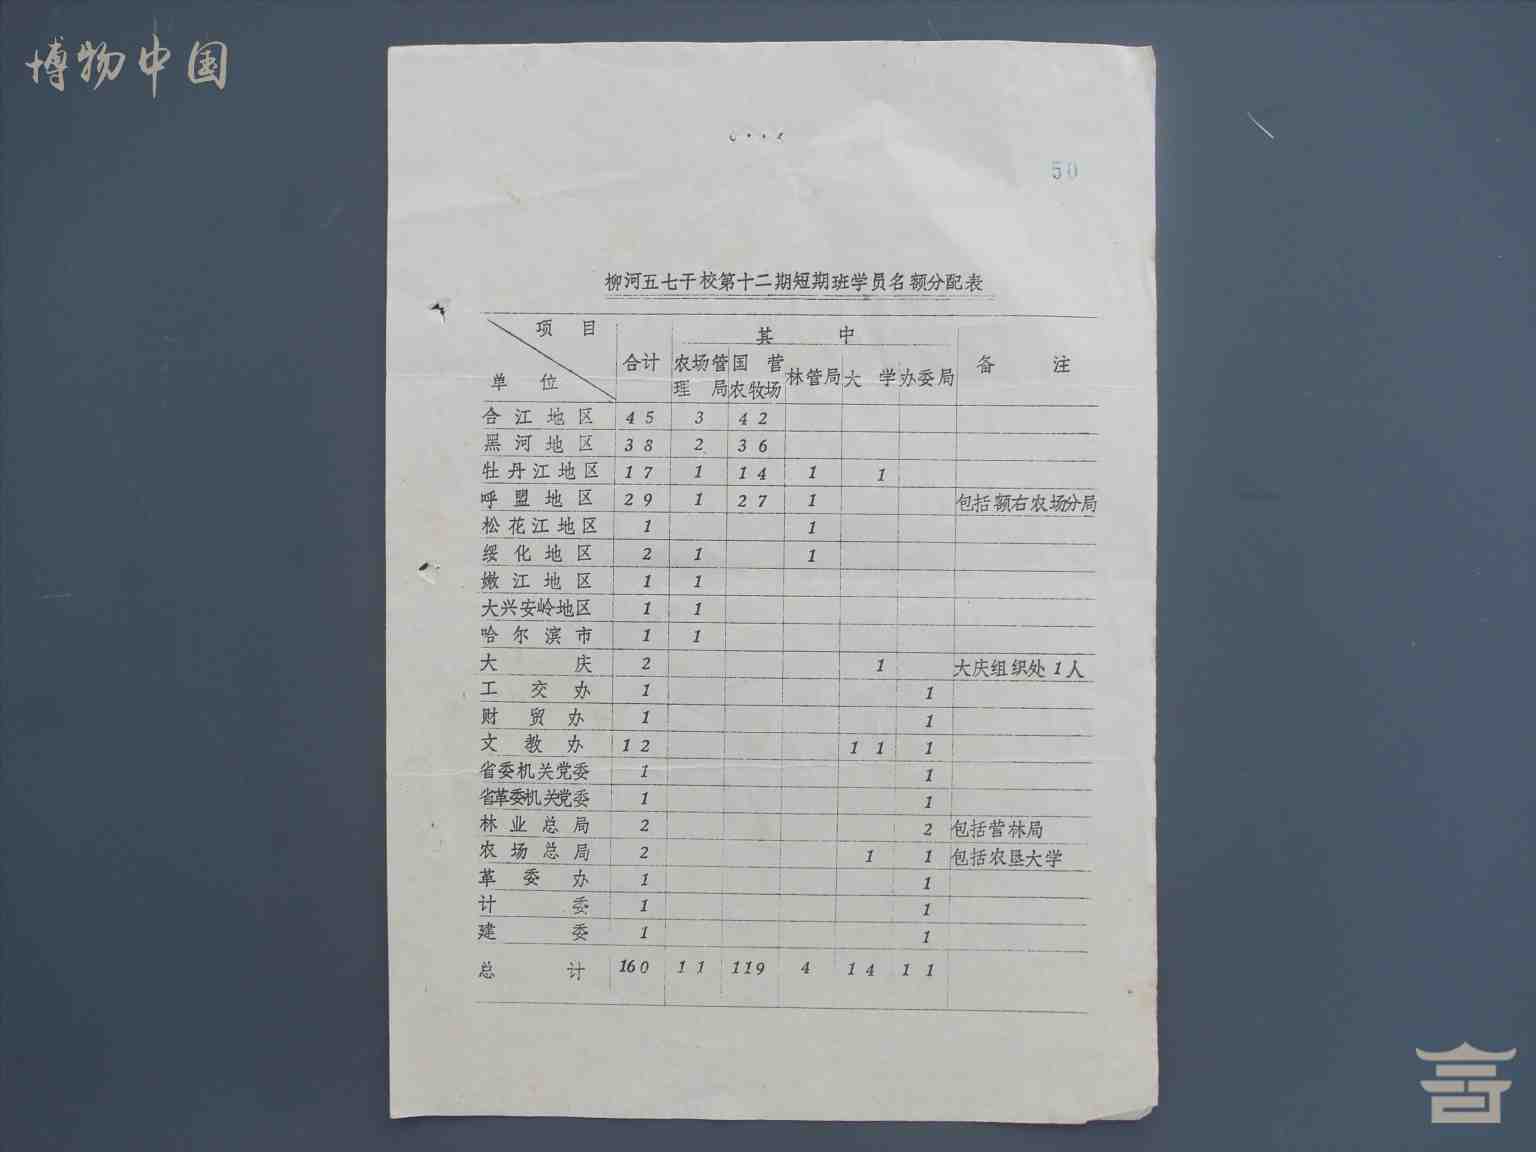 博物中国
50
柳河五七干校第十二期短期班学员名额分配表
项目 其中
单位 合计 农场管理局 国营农牧场 林管局 大学 办委局 备注
合江地区 45 3 42
黑河地区 38 2 36
牡丹江地区 17 1 14 1 1
呼盟地区 29 1 27 1 包括额右农场分局
松花江地区 1 1
绥化地区 2 1 1
嫩江地区 1 1
大兴安岭地区 1 1
哈尔滨市 1 1
大庆 2 1 大庆组织处1人
工交办 1 1
财贸办 1 1
文教办 12 11 1
省委机关党委 1 1
省革委机关党委 1 1
林业总局 2 2 包括营林局
农场总局 2 1 1 包括农垦大学
革委办 1 1
计委 1 1
建委 1 1
总计 160 11 119 4 14 11